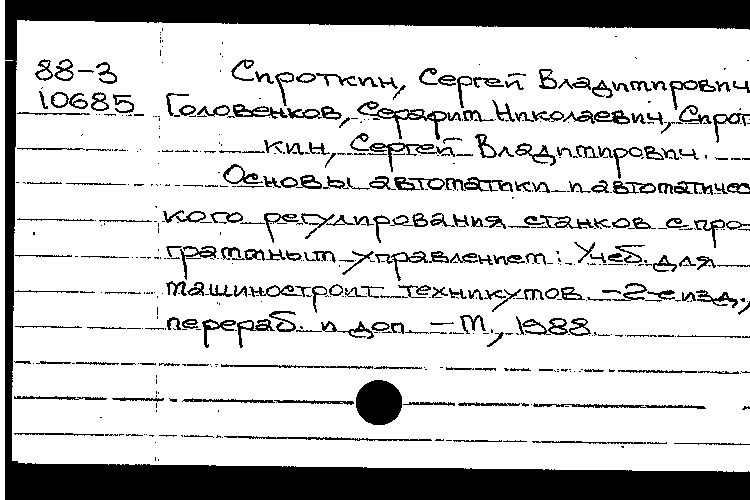 88-3 Сироткин, Сергей Владимирович
10685 Головенков, Серафим Николаевич, Сирот-
кин, Сергей Владимирович.
Основы автоматики и автоматичес
кого регулирования станков с про-
граммным управлением: Учеб. для
машиностроит техникумов. -2-е изд.,
перераб. и доп. - М., 1988.